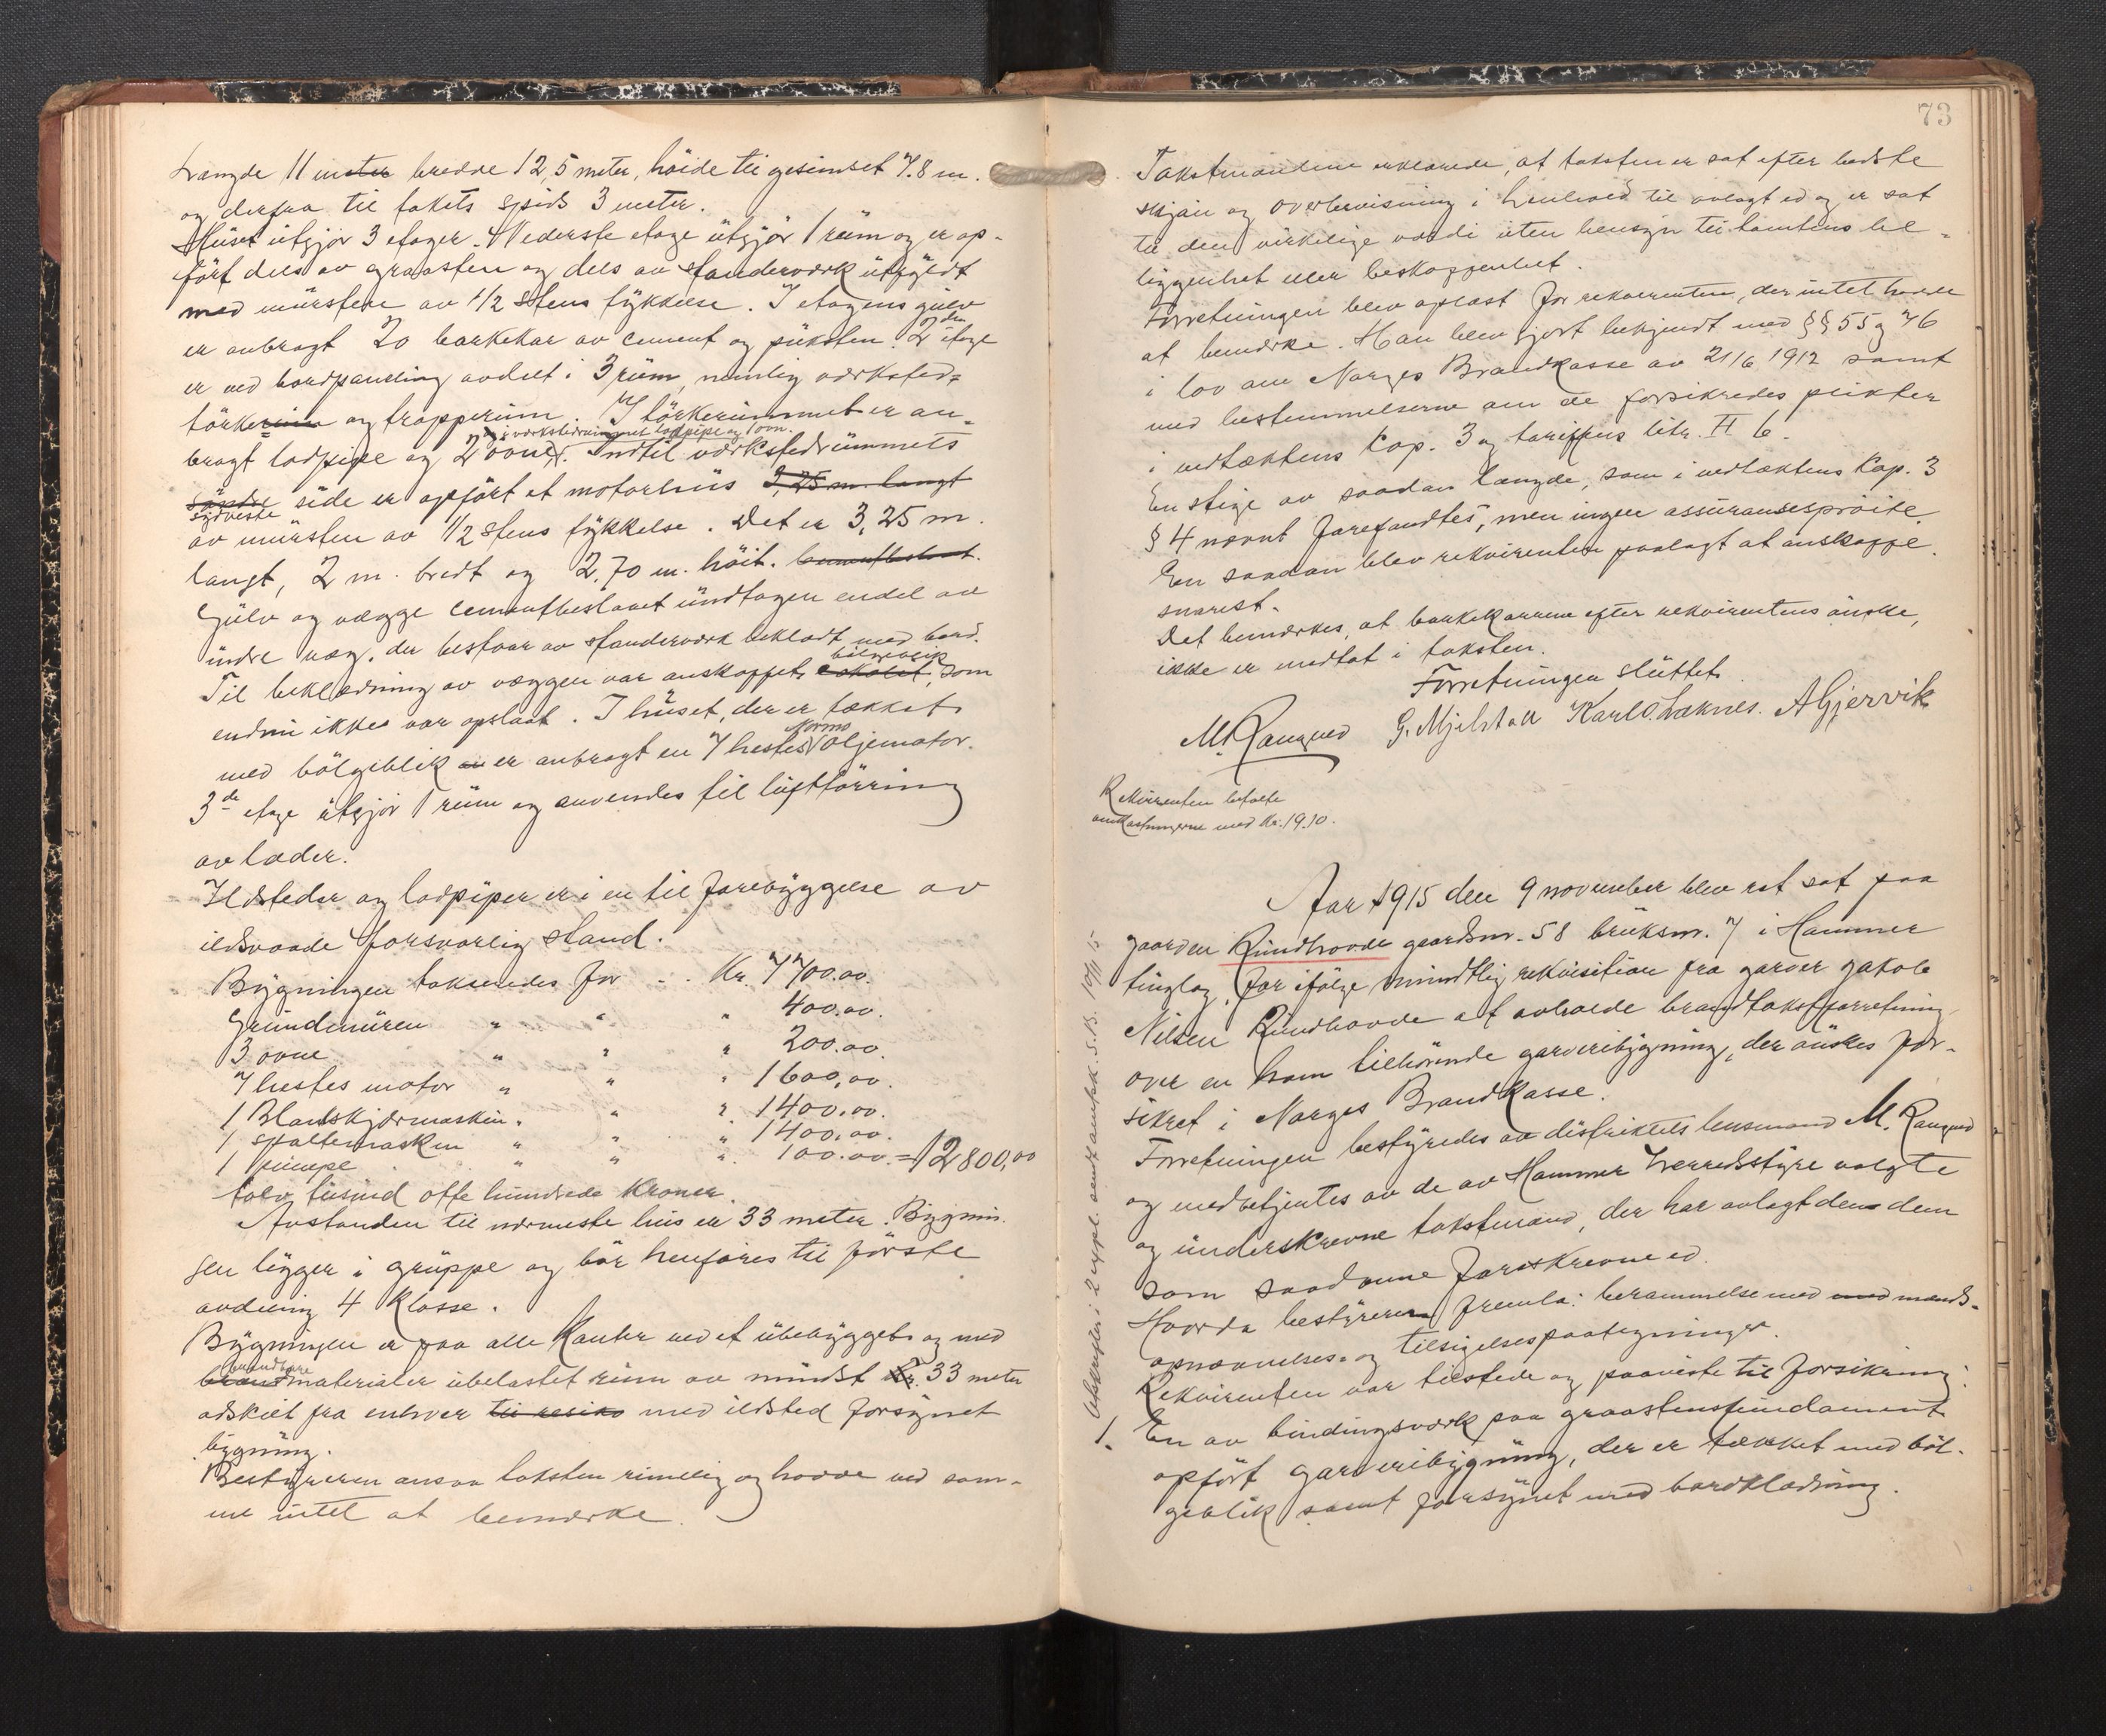 Længde 11 meter bredde 12,5 meter, höide til gesimset 7.8 m.
og derfra til takets spids 3 meter.
Huset utgjör 3 etager. Nederste etage utgjör 1 rum og er op-
fört dels av graasten og dels av standerværk utfyldt
med mursten av 1/2 stens tykkelse. I etagens gulv
er anbragt 20 barkekar av cement og puksten. 2 og den etage
er ved bordpaneling avdelt i 3 rum, nemlig verksted=
törkerum og trapperum. I törkerummet er an-
og i verkstedrummet lodpipe og 1 ovn.
bragt lodpipe og 2 ovner. Indtil verkstedrummets
söndre side er opfört et motorhus 3,25 m. langt
sydveste
av mursten av 1/2 stens tykkelse. Det er 3,25 m.
langt, 2 m. bredt og 2,70 m. höit. cementbeslaat.
Gulv og vægge cementbeslaaet undtagen endel av
indre væg, der bestaar av standerværk beklædt med bord.
bölgeblik
Til beklædning av væggen var anskaffet eskalit, som
endnu ikke var opslaat. I huset, der er tækket
Norms
med bölgeblik er er anbragt en 7 hestes oljemotor.
3de etage utgjör 1 rum og anvendes til lufttörring
av læder.
Ildsteder og lodpiper er i en til forebyggelse av
ildsvaade forsvarlig stand.
Bygningen takseredes for . . Kr. 7700.00.
Grundmuren " " " 400.00.
3 ovne " " " 200.00.
7 hestes motor " " " 1600,00.
1 Blankskjærmaskin " " " 1400.00.
1 spaltemaskin " " " 1400.00.
1 pumpe " " " 100.00. = 12800,00
tolv tusind otte hundrede kroner.
Avstanden til nærmeste hus er 33 meter. Bygnin-
gen ligger i gruppe og bör henföres til förste
avdeling 4 klasse.
Bygningen er paa alle kanter ved et ubebygget og med
brændbare
brand materialer ubelastet rum av mindst Kr. 33 meter
adskilt fra enhver til resiko med ildsted forsynet
bygning.
Bestyreren ansaa taksten rimelig og havde ved sam-
me intet at bemærke.
73
Takstmændene erklærede, at taksten er sat efter bedste
skjön og overbevisning i henhold til avlagt ed og er sat
til den virkelige værdi uten hensyn til tomtens be-
liggenhet eller beskaffenhet.
Forretningen blev oplæst for rekvirenten, der intet havde
at bemerke. Han blev gjort bekjendt med §§ 55 og 76
i lov om Norges Brandkasse av 21/6 1912 samt
med bestemmelserne om de forsikredes plikter
i vedtæktens kap. 3 og tariffens litr. H 6.
En stige av saadan længde, som i vedtæktens kap. 3
§ 4 nævnt forefandtes, men ingen assuransespröite.
En saadan blev rekvirenten paalagt at anskaffe
snarest.
Det bemærkes, at barkekarrene efter rekvirentens önske,
ikke er medtat i taksten.
Forretningen sluttet.
M. Rangved G. Mjelstad Karl O. Loknes. A Gjervik
Rekvirenten betalte
omkostningerne med Kr. 19.10.
Aar 1915 den 9 november blev ret sat paa
gaarden Rundhovde gaardsnr. 58 bruksnr. 7 i Hammer
tinglag, for ifölge mundtlig rekvisition fra garver Jakob
Nilsen Rundhovde at avholde brandtakstforretning
over en ham tilhörende garveribygning, der önskes for-
sikret i Norges Brandkasse.
Forretningen bestyredes av distriktets lensmand M. Rangved
og medbetjentes av de av Hammer herredsstyre valgte
og underskrevne takstmænd, der har avlagt den dem
som saadanne foreskrevne ed.
Hvorda bestyreren fremla: berammelse med med mands-
opnævnelses- og tilsigelsespaategninger.
Rekvirenten var tilstede og paaviste til forsikring:
1. En av bindingsverk paa graastensfundament
opfört garveribygning, der er tækket med böl-
geblik samt forsynet med bordklædning.
Utskrifter i 2 expl. sendt amtsk. S. B. 10/11 15